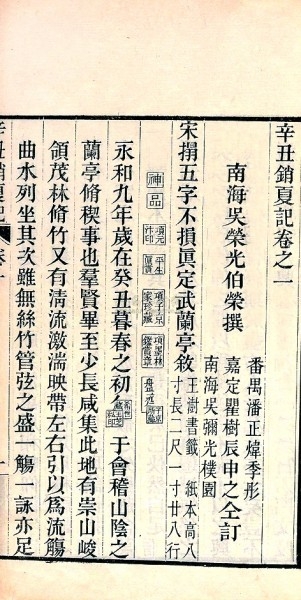 辛丑銷夏記卷之一
南海吳榮光伯榮撰
番禺潘正煒季彤
嘉定瞿樹辰申之仝訂
南海吳彌光樸園
宋搨五字不損眞定武蘭亭敘王澍書籤 紙本高八寸長二尺一寸廿八行
神品
項元汴印
平生眞賞
項子京家珍藏
項墨林鑑賞章
永和九年歲在癸丑暮春之初 于會稽山陰之
蘭亭脩稧事也羣賢畢至少長咸集此地有崇山峻
領茂林脩竹又有清流激湍暎帶左右引以爲流觴
曲水列坐其次雖無絲竹管弦之盛一觴一詠亦足
辛丑銷夏記